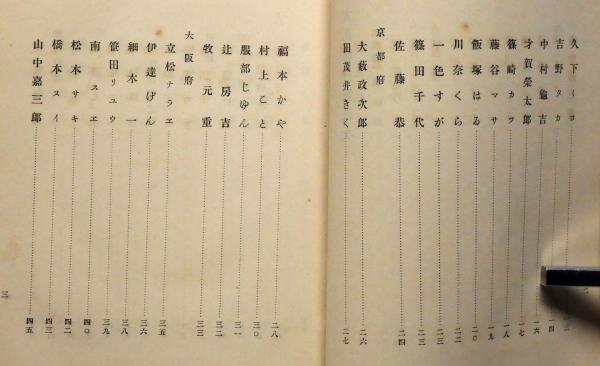 久下ミヨ
吉野タカ……一四
中村亀吉……一六
才賀榮太郎……一七
篠崎カツ……一八
藤谷マサ……一九
飯塚はる……二〇
川奈くら……二二
一色すが……二三
篠田千代……二三
佐藤恭……二四
京都府
大薮政次郎……二六
田茂井きく……二七
福本かや……二八
村上こと……三〇
服部じゆん……三一
辻房吉……三二
牧元重……三三
大阪府
立松ナラヱ……三五
伊達げん……三六
細木一……三八
笹田リユウ……三九
南スヱ……四〇
松本サキ……四二
橋本スイ……四三
山中嘉三郎……四五